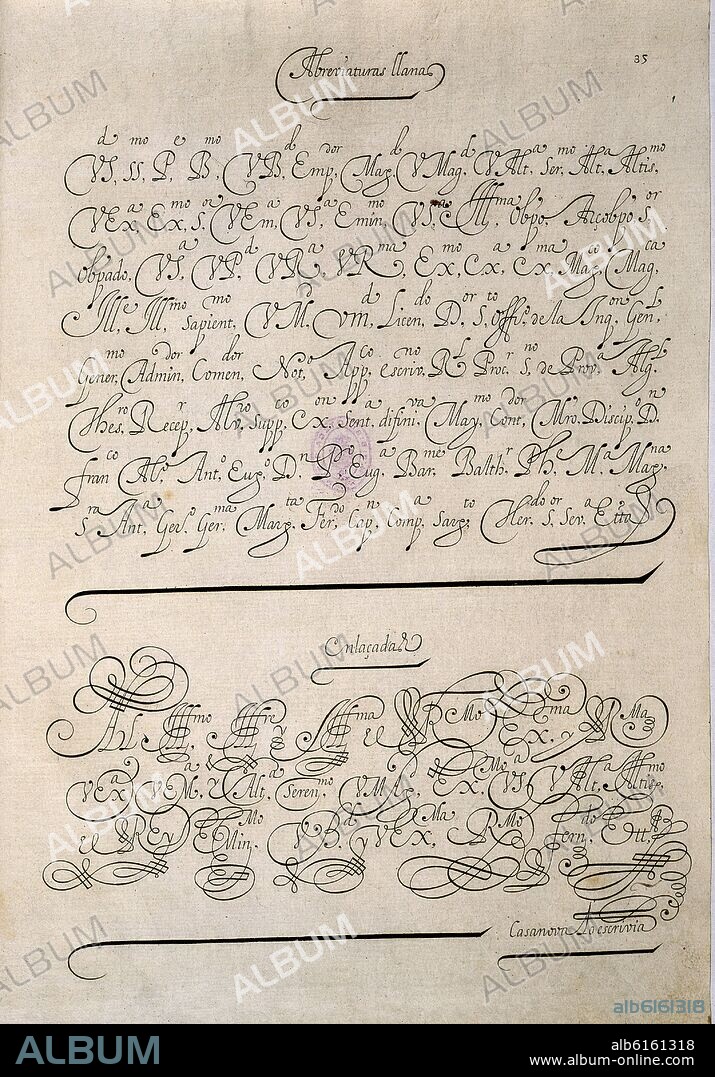 Abreviaturas llanas
35
VSᵈ, SSᵐᵒ, Pᵉ, Bᵐᵒ, VBᵈ, Empᵈᵒʳ, Magᵈ, VMagᵈ, VAltᵃ, Serᵐᵒ, Altᵃ, Altisᵐᵒ
VExᵃ, Exᵐᵒ, Sᵒʳ, VEmᵃ, VSᵃ, Eminᵐᵒ, VSᵃ, Illᵐᵃ, Obpo, Arçobpo, Sᵒʳ,
Obpado, VSᵃ, VPᵈ, VRᵃ, VRᵐᵃ, Exᵐᵒ, Cxᵃ, Cxᵐᵃ, Magᶜᵒ, Magᶜᵃ,
Illᵉ, Illᵐᵒ, Sapientᵐᵒ, VMᵈ, Vm, Licenᵈᵒ, Dᵒʳ, Sᵗᵒ, offiᵒ, de la Inqᵒⁿ, Genˡ,
Generᵐᵒ, Adminᵈᵒʳ, Comenᵈᵒʳ, Notᵒ, Appᶜᵒ, escrivⁿᵒ, Rˡ, Procʳ, Sⁿᵒ, de Provᵃ, Algˡ
Thesʳᵒ, Recepʳ, Alvʳᵒ, Suppᶜᵒ, Cxᵒⁿ, Sentᵃ, difiniᵛᵃ, Mayᵐᵒ, Contᵈᵒʳ, Mro, Discipᵒ, Dⁿ
franᶜᵒ, Alᵒ, Antᵒ, Eugᵒ, Dⁿ, Pᵒ, Eugᵃ, Barᵐᵉ, Balthʳ, Phᵉ, Mᵃ, Magⁿᵃ,
Sʳᵃ, Antᵃ, Gerᵒ, Gerᵐᵃ, Margᵗᵃ, Ferᵈᵒ, Capⁿ, Compᵃ, Sargᵗᵒ, Herᵈᵒ, Sᵒʳ, Sevᵃ, Ettᵃ
Enlaçadas
AL Illᵐᵒ, Illʳᵉ y Illᵐᵃ Rᴹᵒ Exᵐᵃ, y Rᴹᵃ
VExᵃ VEMᵃ, y Altᵃ Serenᵐᵒ, VMag, EXᴹᵒ, VS, VAltᵃ, Altisᵐᵒ,
REy EMinᴹᵒ, VBᵈ, y VEXᴹᵃ, Rᴹᵒ fernᵈᵒ, Ettᵃ
Casanova Lo escrivia
ALBUM
alb6161318
ALBUM
alb6161318
www.album-online.com